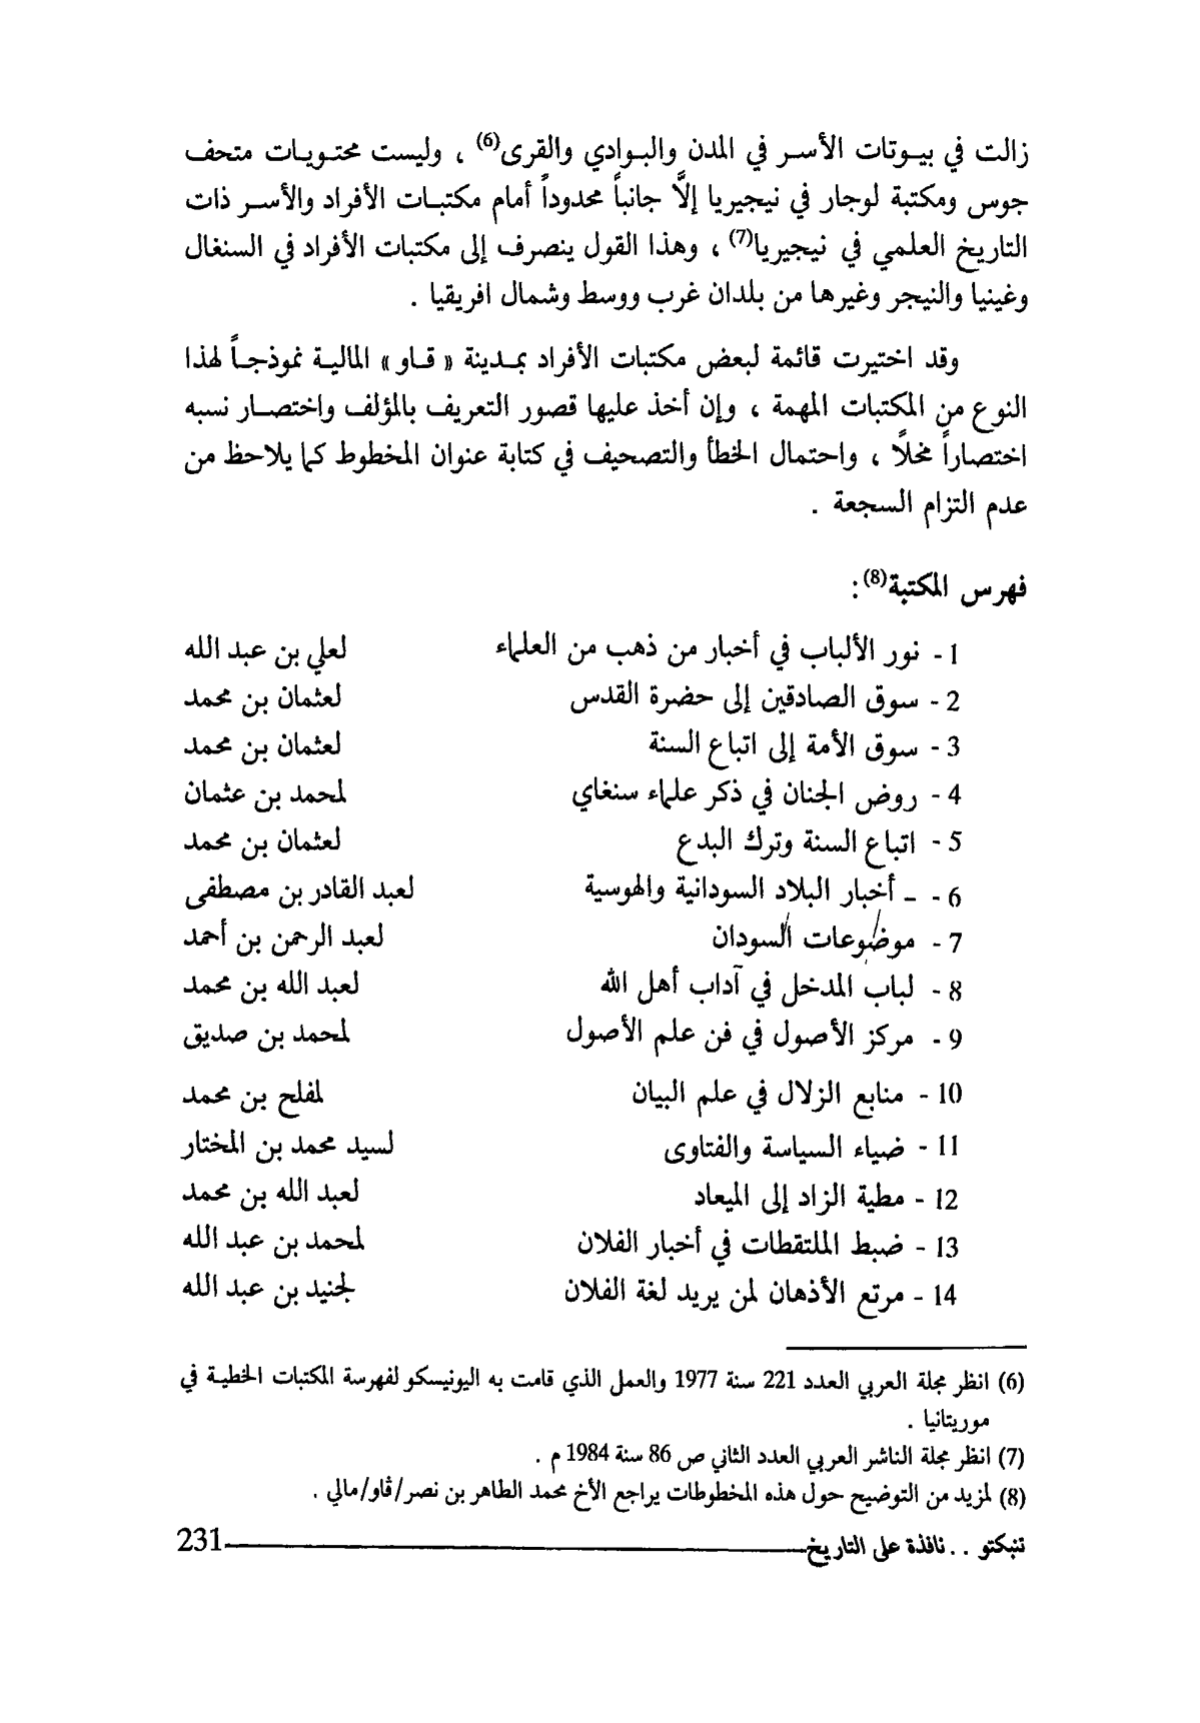 زالت في بيوتات الأسر في المدن والبوادي والقرى(6) ، وليست محتويات متحف
جوس ومكتبة لوجار في نيجيريا إلاَّ جانباً محدوداً أمام مكتبات الأفراد والأسر ذات
التاريخ العلمي في نيجيريا(7) ، وهذا القول ينصرف إلى مكتبات الأفراد في السنغال
وغينيا والنيجر وغيرها من بلدان غرب ووسط وشمال افريقيا .
وقد اختيرت قائمة لبعض مكتبات الأفراد بمدينة « قاو » المالية نموذجاً لهذا
النوع من المكتبات المهمة ، وإن أخذ عليها قصور التعريف بالمؤلف واختصار نسبه
اختصاراً مخلًا ، واحتمال الخطأ والتصحيف في كتابة عنوان المخطوط كما يلاحظ من
عدم التزام السجعة .
فهرس المكتبة(8):
1 - نور الألباب في أخبار من ذهب من العلماء لعلي بن عبد الله
2 - سوق الصادقين إلى حضرة القدس لعثمان بن محمد
3 - سوق الأمة إلى اتباع السنة لعثمان بن محمد
4 - روض الجنان في ذكر علماء سنغاي لمحمد بن عثمان
5 - اتباع السنة وترك البدع لعثمان بن محمد
6 - - أخبار البلاد السودانية والهوسية لعبد القادر بن مصطفى
7 - موضوعات السودان لعبد الرحمن بن أحمد
8 - لباب المدخل في آداب أهل الله لعبد الله بن محمد
9 - مركز الأصول في فن علم الأصول لمحمد بن صديق
10 - منابع الزلال في علم البيان لمفلح بن محمد
11 - ضياء السياسة والفتاوى لسيد محمد بن المختار
12 - مطية الزاد إلى الميعاد لعبد الله بن محمد
13 - ضبط الملتقطات في أخبار الفلان لمحمد بن عبد الله
14 - مرتع الأذهان لمن يريد لغة الفلان لجنيد بن عبد الله
(6) انظر مجلة العربي العدد 221 سنة 1977 والعمل الذي قامت به اليونيسكو لفهرسة المكتبات الخطية في
موريتانيا .
(7) انظر مجلة الناشر العربي العدد الثاني ص 86 سنة 1984 م .
(8) لمزيد من التوضيح حول هذه المخطوطات يراجع الأخ محمد الطاهر بن نصر/ڤاو/مالي .
تنبكتو . . نافذة على التاريخ 231